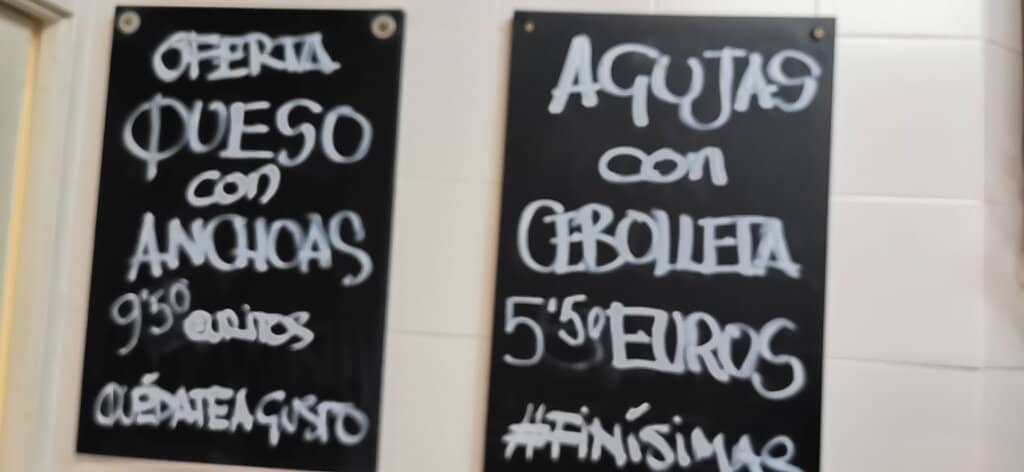 OFERTA
QUESO
con
ANCHOAS
9'50 euritos
QUÉDATE A GUSTO
AGUJAS
con
CEBOLLETA
5'50 EUROS
#FINÍSIMAS